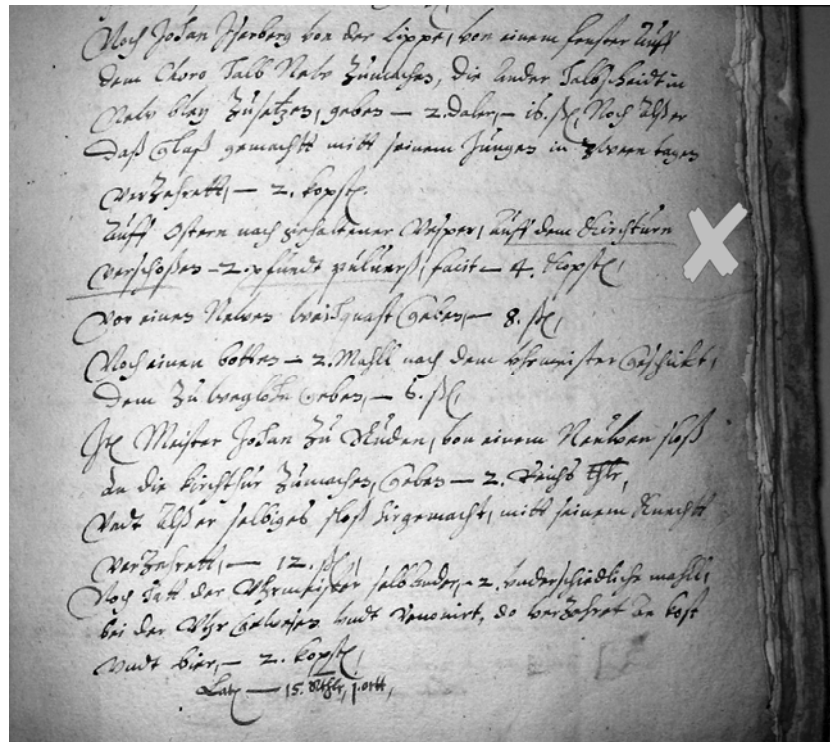 Noch Johan Iserberg von der Lippe, von einem fenster auff
dem Choro halb New zumachen, die ander halbscheidt in
New bley zusetzen, geben — 2. daler, — 16. ßl, Noch alß er
daß Glaß gemacht mitt seinem Jungen in zween tagen
verzehrett, — 2. kopst.
Auff Ostern nach gehaltener Vesper, auff dem Kirchturn
verschoßen — 2. pfundt puluers, facit — 4. kopst,
Vor einen Newen weihquast Geben, — 8. ßl,
Noch einen botten — 2. Mahll nach dem uhrmeister Geschickt,
dem zu weglohn Geben, — 6. ßl,
Meister Johan zu Rüden, von einem Neuwen sloß
an die kirchthür zumachen, Geben — 2. Reichs thlr,
Vndt alß er selbiges sloß hirgemacht, mitt seinem Knecht
verzehrett, — 12. ßl,
Noch hatt der Vhrmeister selbander, — 2. vnderschiedliche mahll,
bei der Vhr Gewesen vndt renouirt, do verzehret an kost
vndt bier, — 2. kopst,
Lat — 15. Rthlr, 1. ortt,